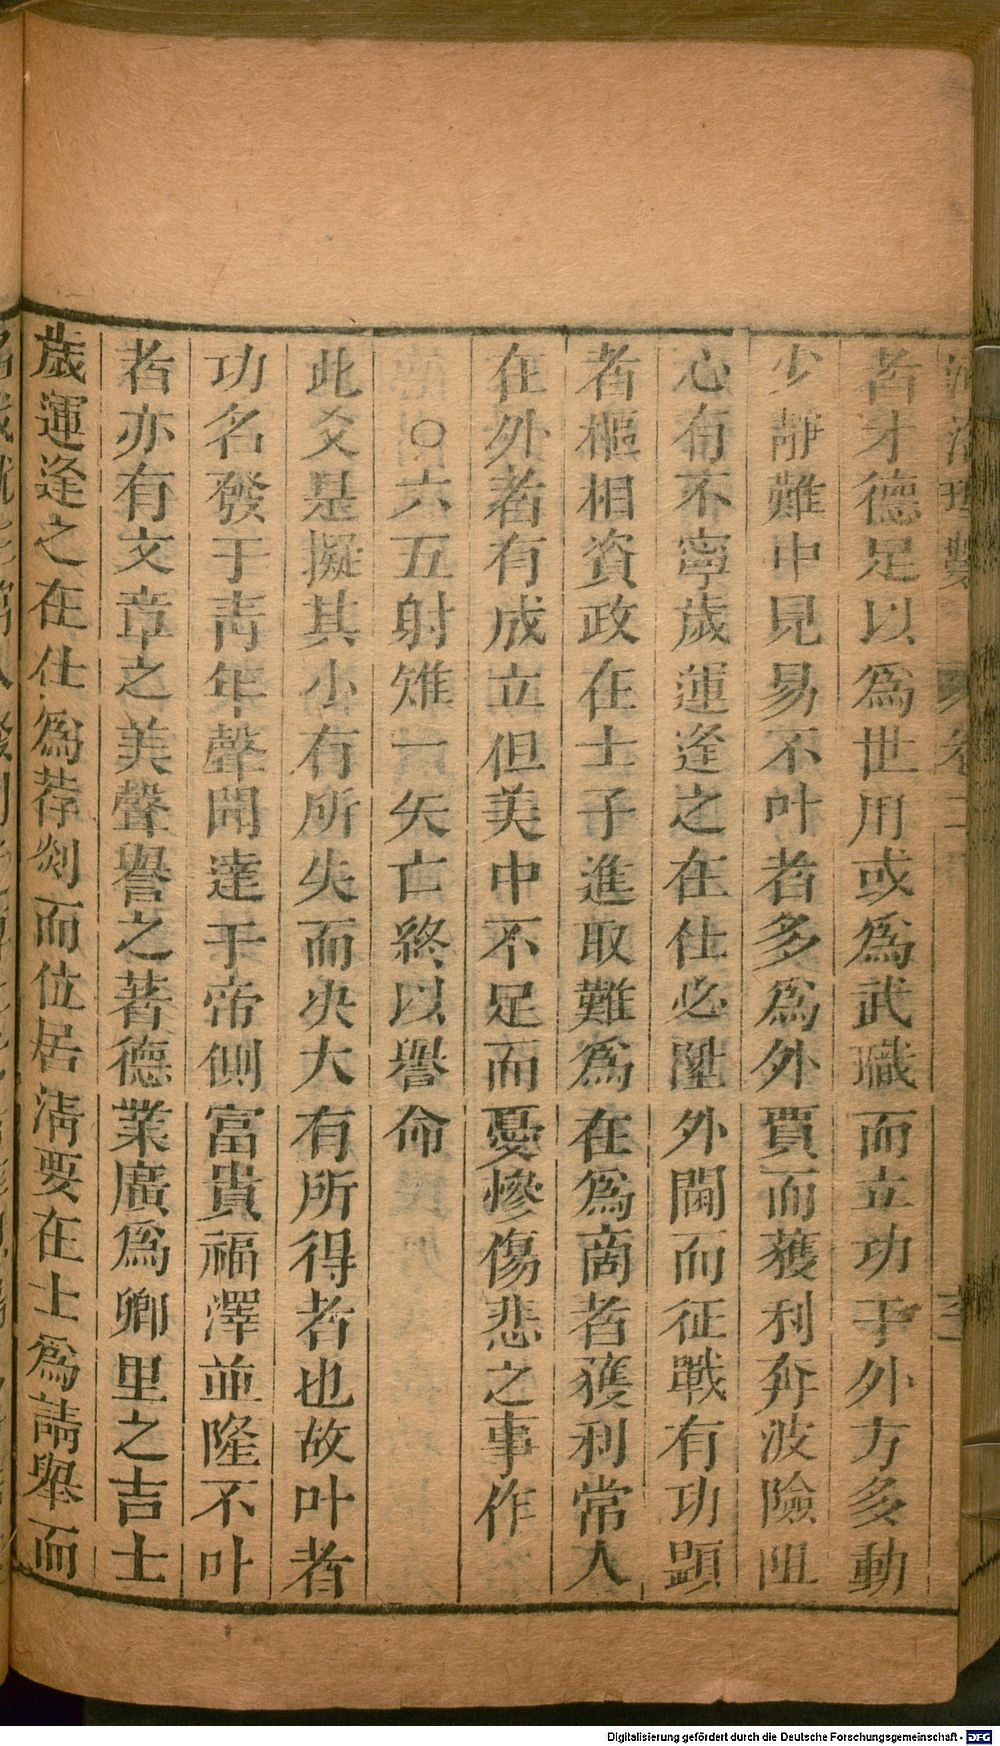 者才德足以爲世用或爲武職而立功于外方多動
少靜難中見易不叶者多爲外賈而獲利奔波險阻
心旬不寧歲運逢之在仕必陞外閫而征戰有功顕
者樞相資政在士子進取難爲在爲商者獲利常人
在外者有成立但美中不足而憂慘傷悲之事作
○六五射雉一矢亡終以譽命
此爻是擬其小有所失而决大有所得者也故叶者
功名發于靑年聲聞達于帝側富貴福澤並隆不叶
者亦有文章之美聲譽之著德業廣爲鄉里之吉士
歲運逢之在仕爲荐剡而位居淸要在士爲請舉而
Digitalisierung gefördert durch die Deutsche Forschungsgemeinschaft - DFG